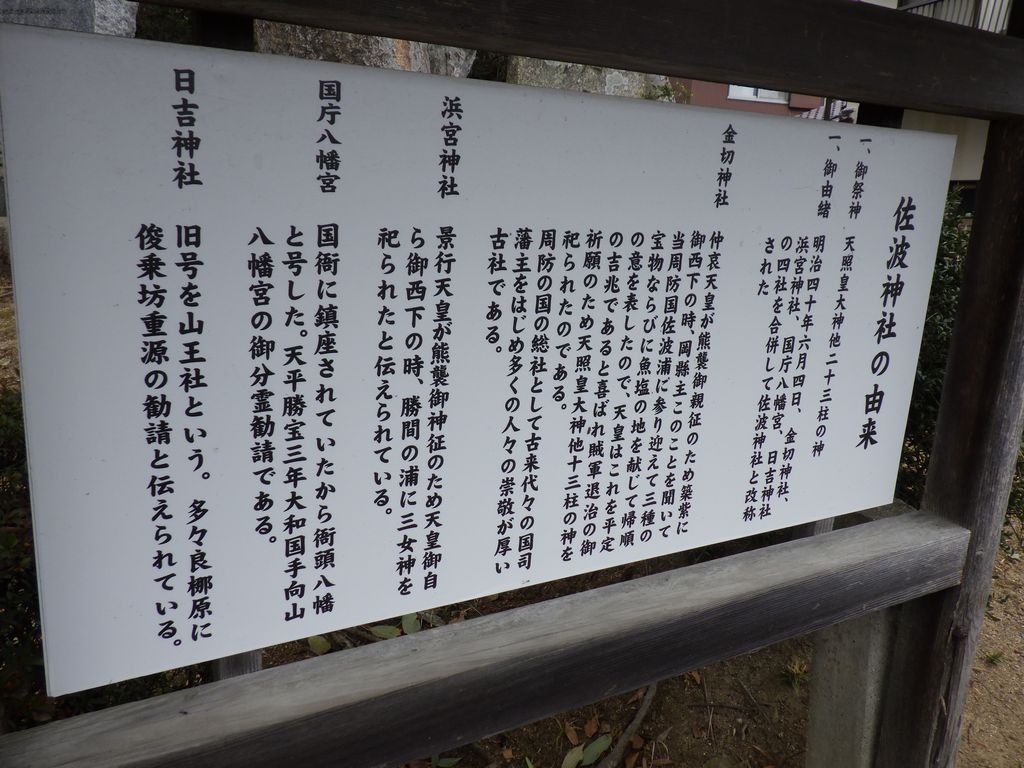 佐波神社の由来
一、御祭神　天照皇大神他二十三柱の神
一、御由緒　明治四十年六月四日、金切神社、
浜宮神社、国庁八幡宮、日吉神社
の四社を合併して佐波神社と改称
された
金切神社
仲哀天皇が熊襲御親征のため築紫に
御西下の時、岡縣主このことを聞いて
当周防国佐波浦に参り迎えて三種の
宝物ならびに魚塩の地を献じて帰順
の意を表したので、天皇はこれを平定
の吉兆であると喜ばれ賊軍退治の御
祈願のため天照皇大神他十三柱の神を
祀られたのである。
周防の国の総社として古来代々の国司
藩主をはじめ多くの人々の崇敬が厚い
古社である。
浜宮神社
景行天皇が熊襲御神征のため天皇御自
ら御西下の時、勝間の浦に三女神を
祀られたと伝えられている。
国庁八幡宮
国衙に鎮座されていたから衙頭八幡
と号した。天平勝宝三年大和国手向山
八幡宮の御分霊勧請である。
日吉神社
旧号を山王社という。多々良梛原に
俊乗坊重源の勧請と伝えられている。